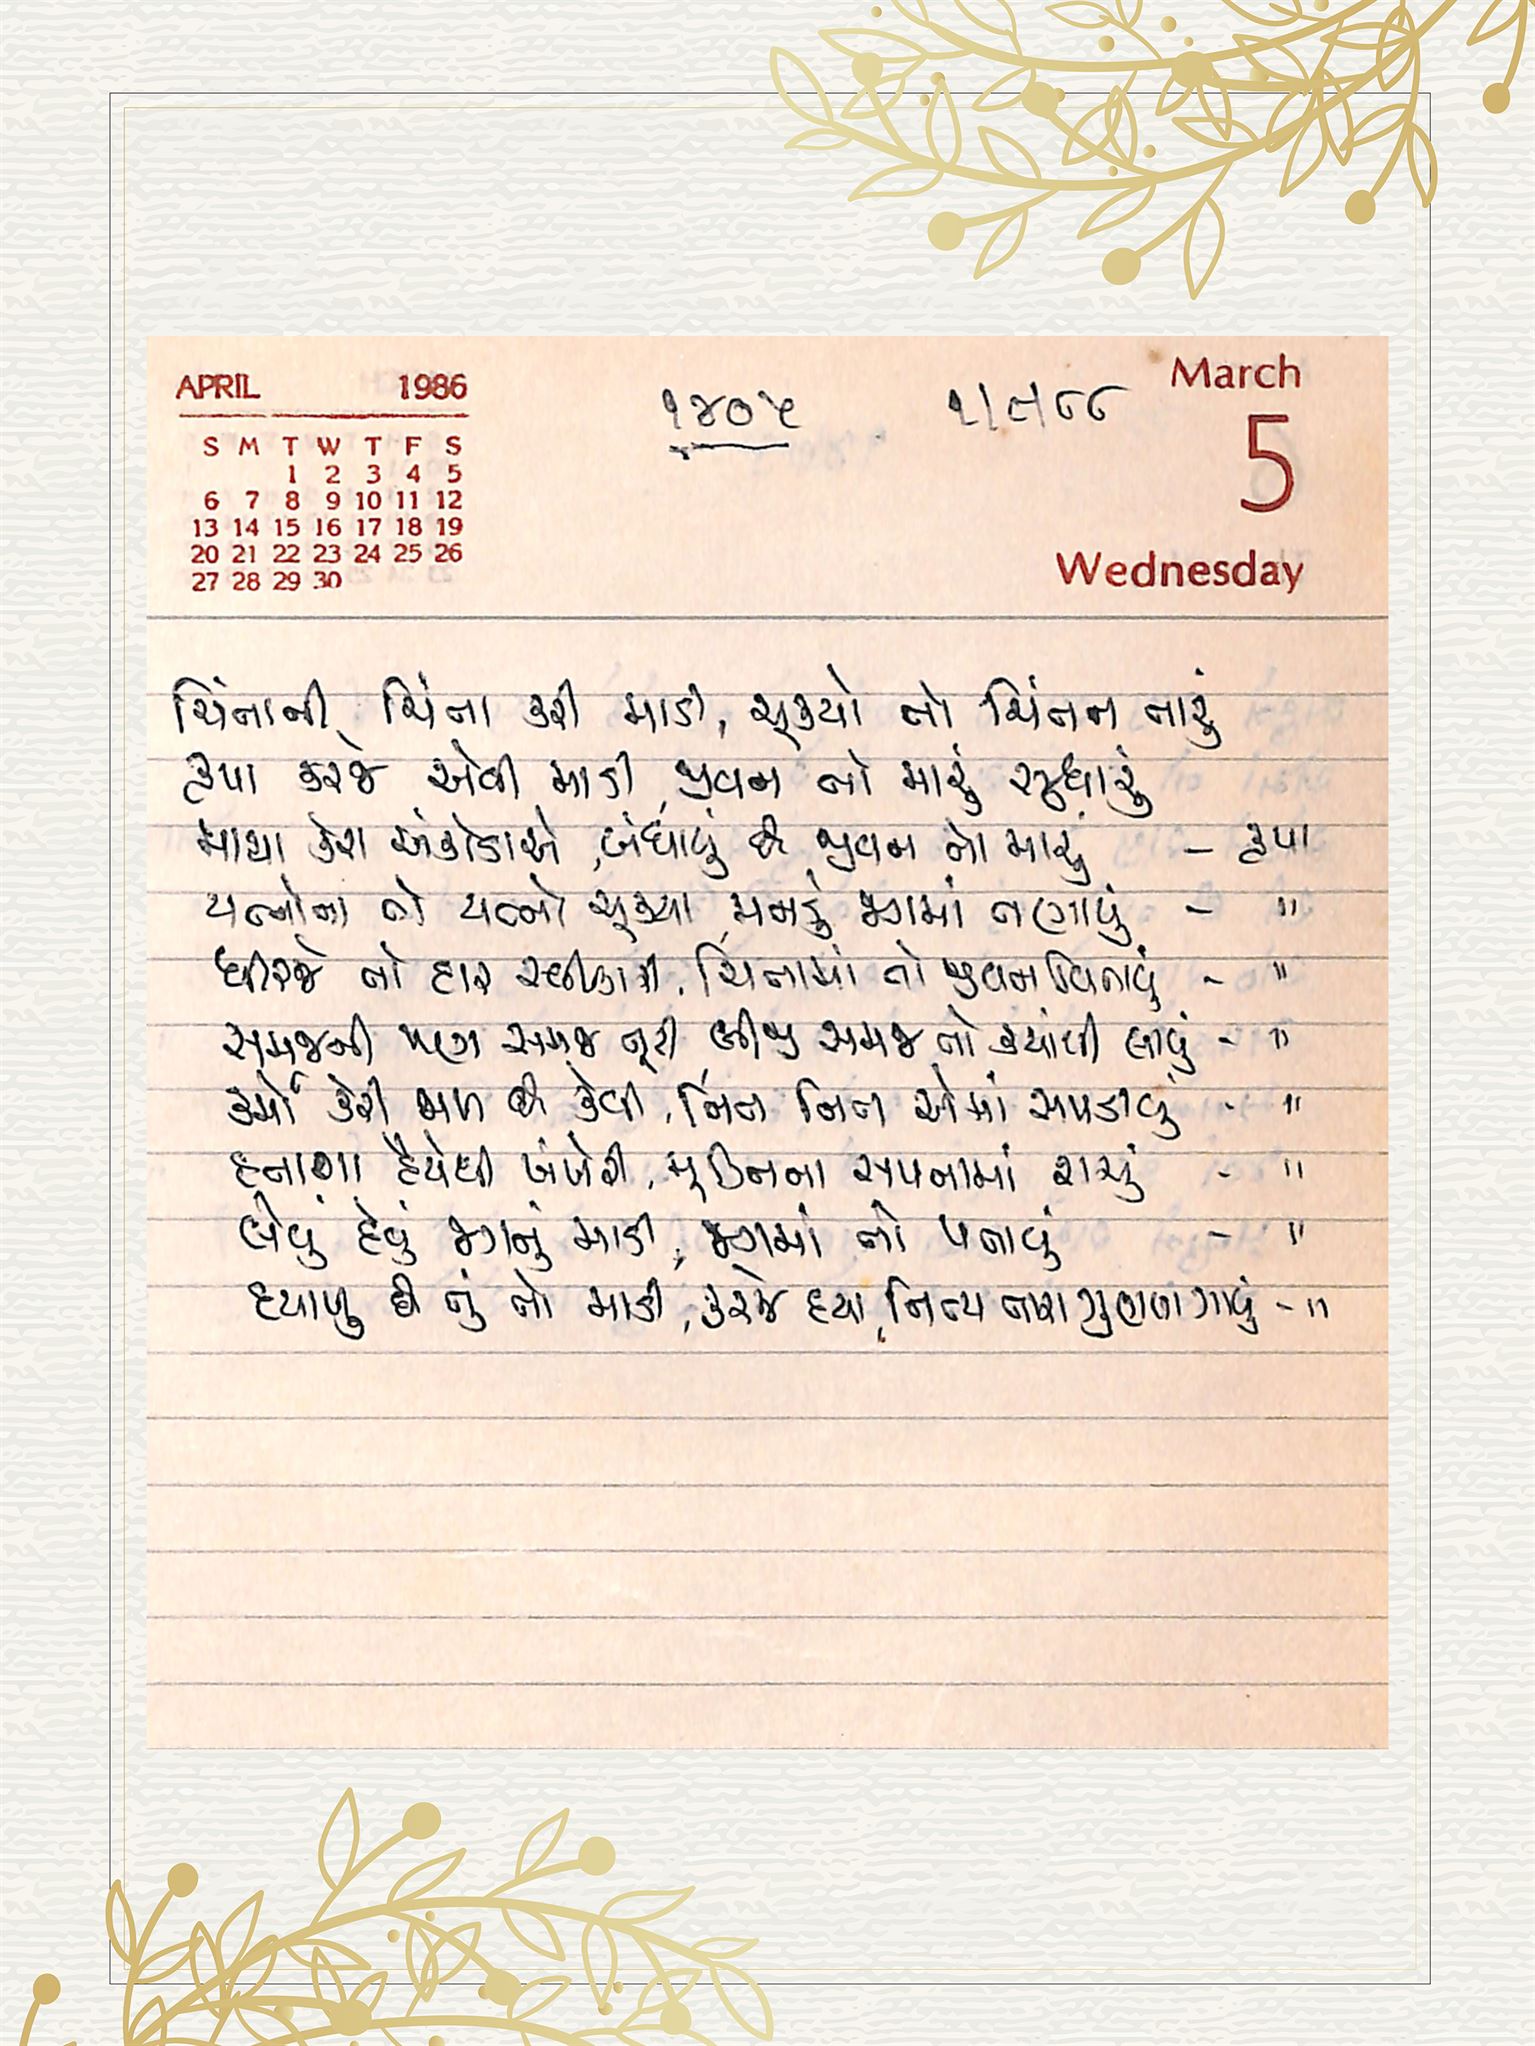 APRIL 1986
S M T W T F S
1 2 3 4 5
6 7 8 9 10 11 12
13 14 15 16 17 18 19
20 21 22 23 24 25 26
27 28 29 30
૧૪૦૫ ૧/૯/૮૮
March
5
Wednesday
ચિંતાની ચિંતા કરી માડી, ચૂક્યો તો ચિંતન તારું
કૃપા કરજે એવી માડી, જીવન તો મારું સુધારું
માયા કેરા અંકોડાએ, બંધાયું છે જીવન તો મારું - કૃપા
યત્નોના તો યત્નો ચૂક્યા, મનડું જગમાં તણાયું - "
ધીરજે તો હાર સ્વીકારી, ચિંતામાં તો જીવન વિતાવું - "
સમજની પણ સમજ તૂટી, બીજી સમજ તો ક્યાંથી લાવું - "
કર્મો કેરી જાળ છે કેવી, નિત નિત એમાં સપડાવું - "
હતાશા હૈયેથી ખંખેરી, મુક્તિના સપનામાં રાચું - "
લેવું દેવું જગનું માડી, જગમાં તો પતાવું - "
દયાળુ છે તું તો માડી, કરજે દયા, નિત્ય તારા ગુણલાં ગાવું - "